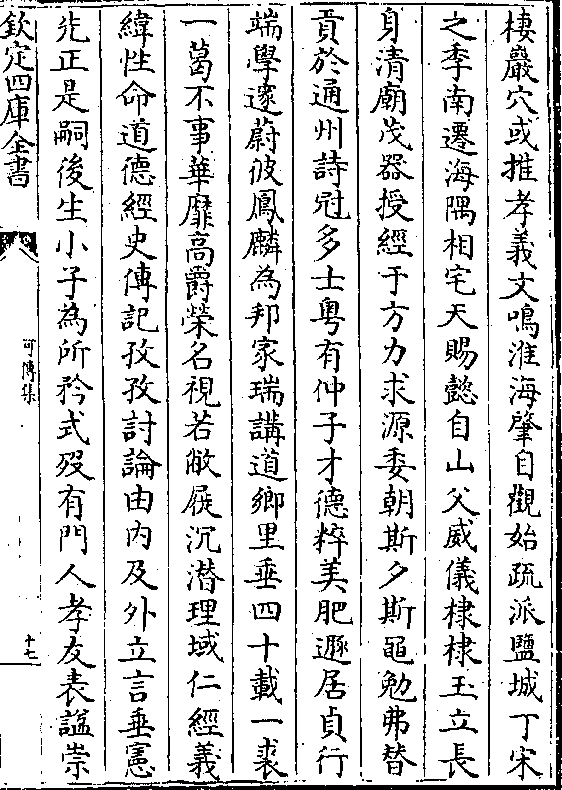 棲嚴穴或推孝義文鳴淮海肇自觀始疏派鹽城丁宋
之季南遷海隅相宅天賜懿自山父威儀棣棣玉立長
身清廟茂器授經于方力求源委朝斯夕斯黽勉弗替
貢於通州詩冠多士粤有仲子才德粹美肥遯居貞行
端學邃蔚彼鳳麟為邦家瑞講道鄉里垂四十載一裘
一葛不事華靡高爵榮名視若敝屣沉潜理域仁經義
緯性命道德經史傳記孜孜討論由内及外立言垂憲
先正是嗣後生小子為所矜式歿有門人孝友表諡崇
欽定四庫全書
可傳集
十七